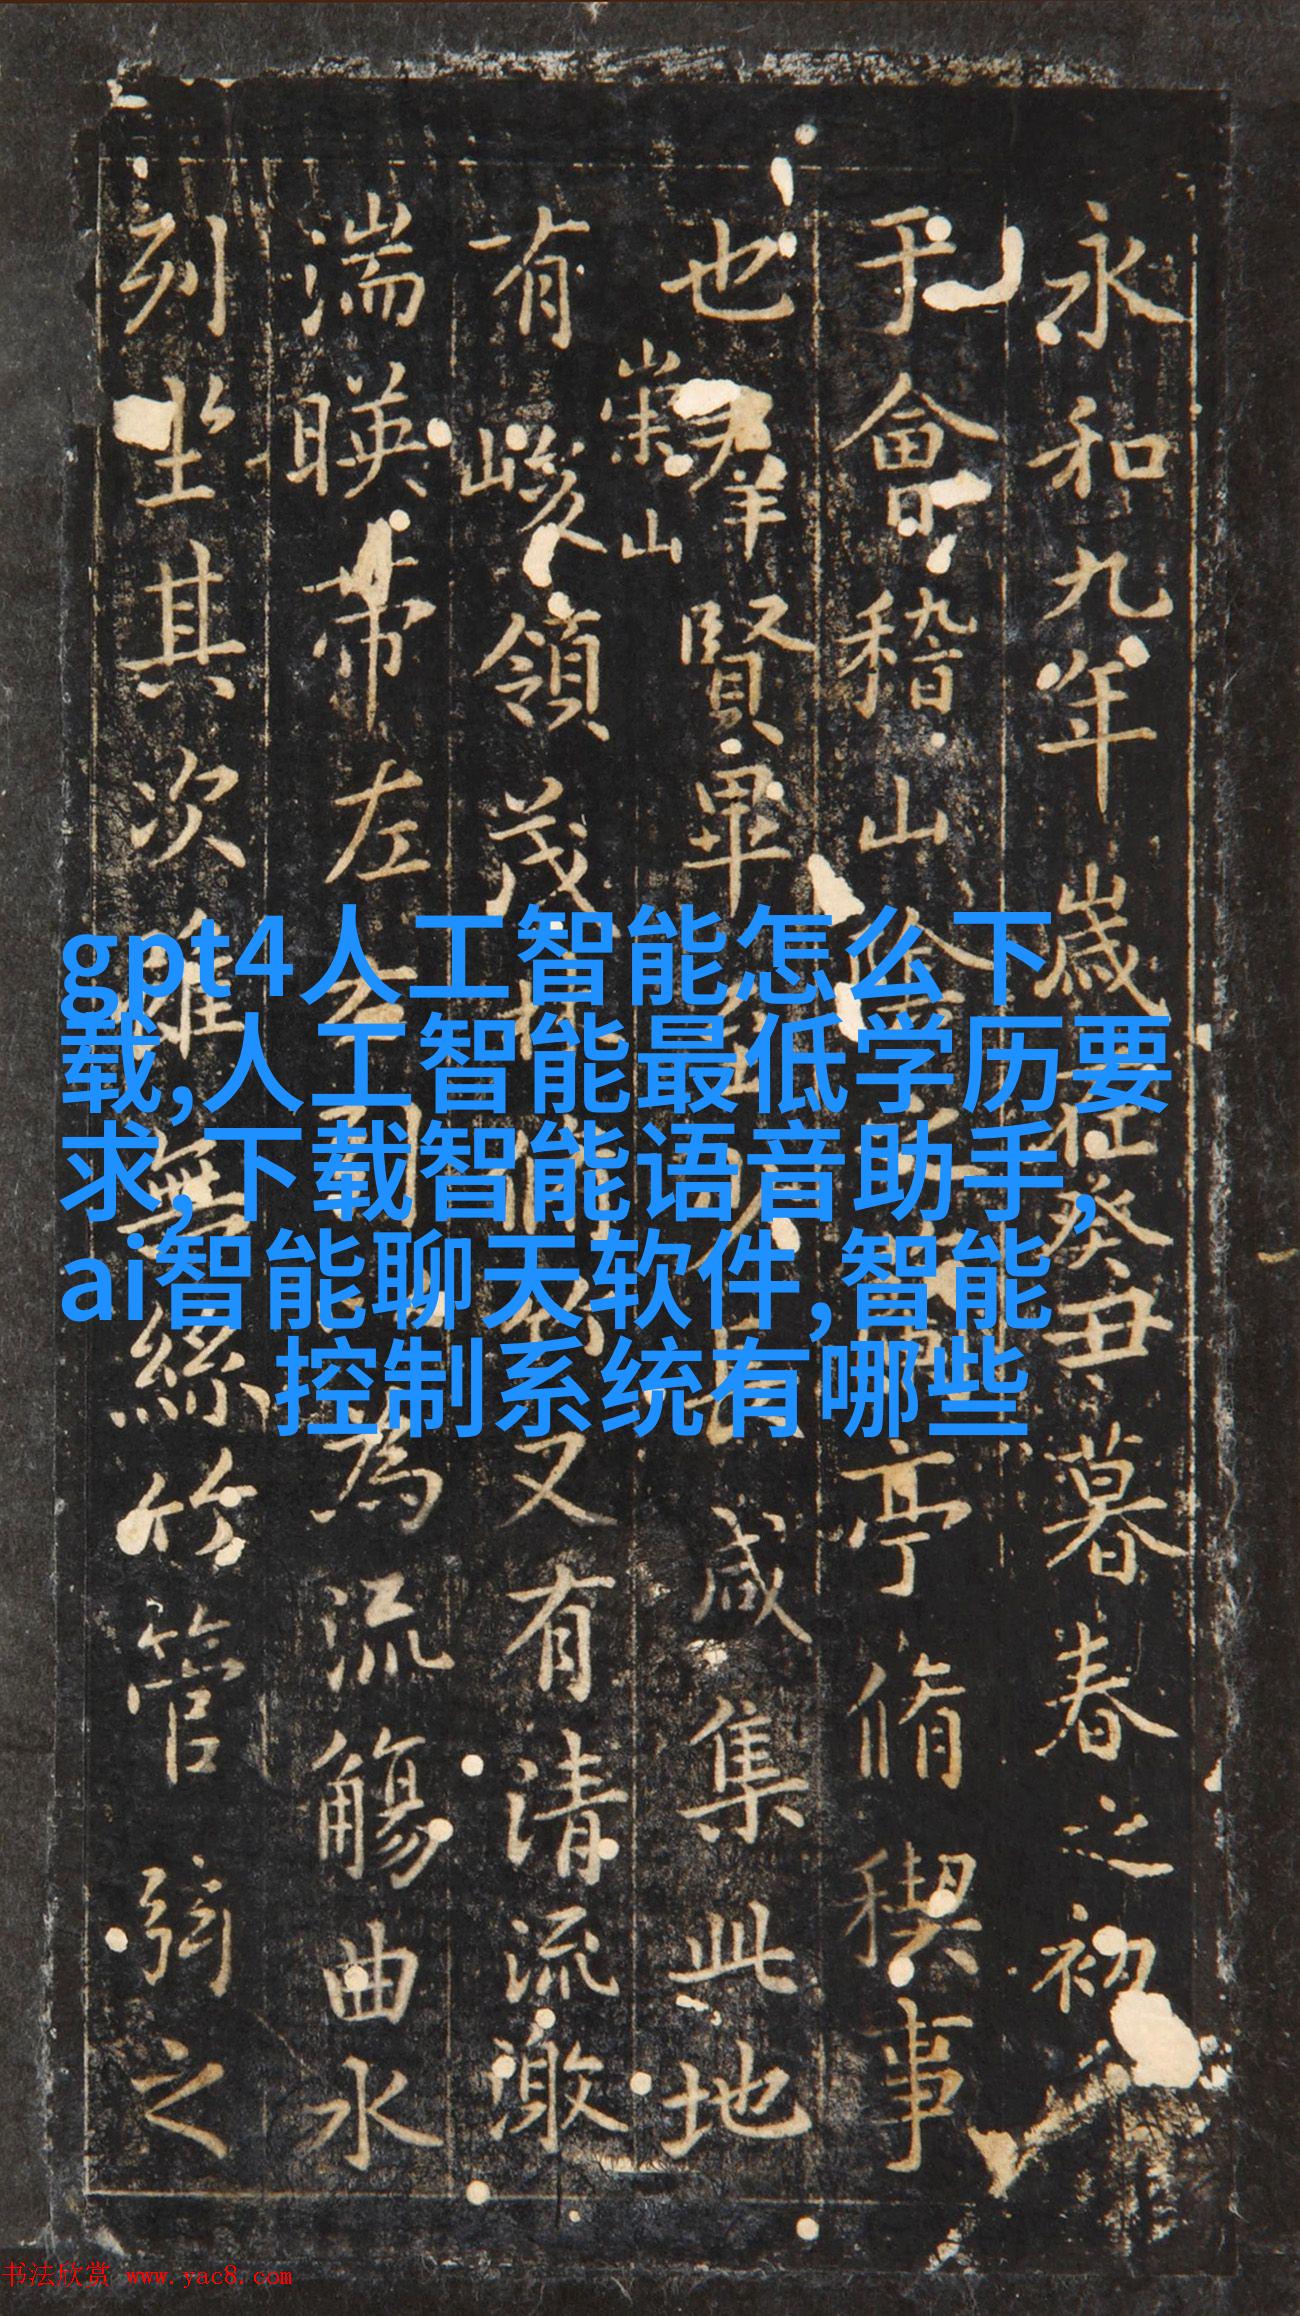 永和九年歲在癸丑暮春之初
于會稽山陰亭脩稧事
也羣賢畢咸集此地
崇山
有峻領茂林脩又有清流激
湍暎帶左右引為流觴曲水
列坐其次雖無絲竹管弦之
gpt4人工智能怎么下
载,人工智能最低学历要
求,下载智能语音助手,
ai智能聊天软件,智能
控制系统有哪些
书法欣赏 www.yac8.com